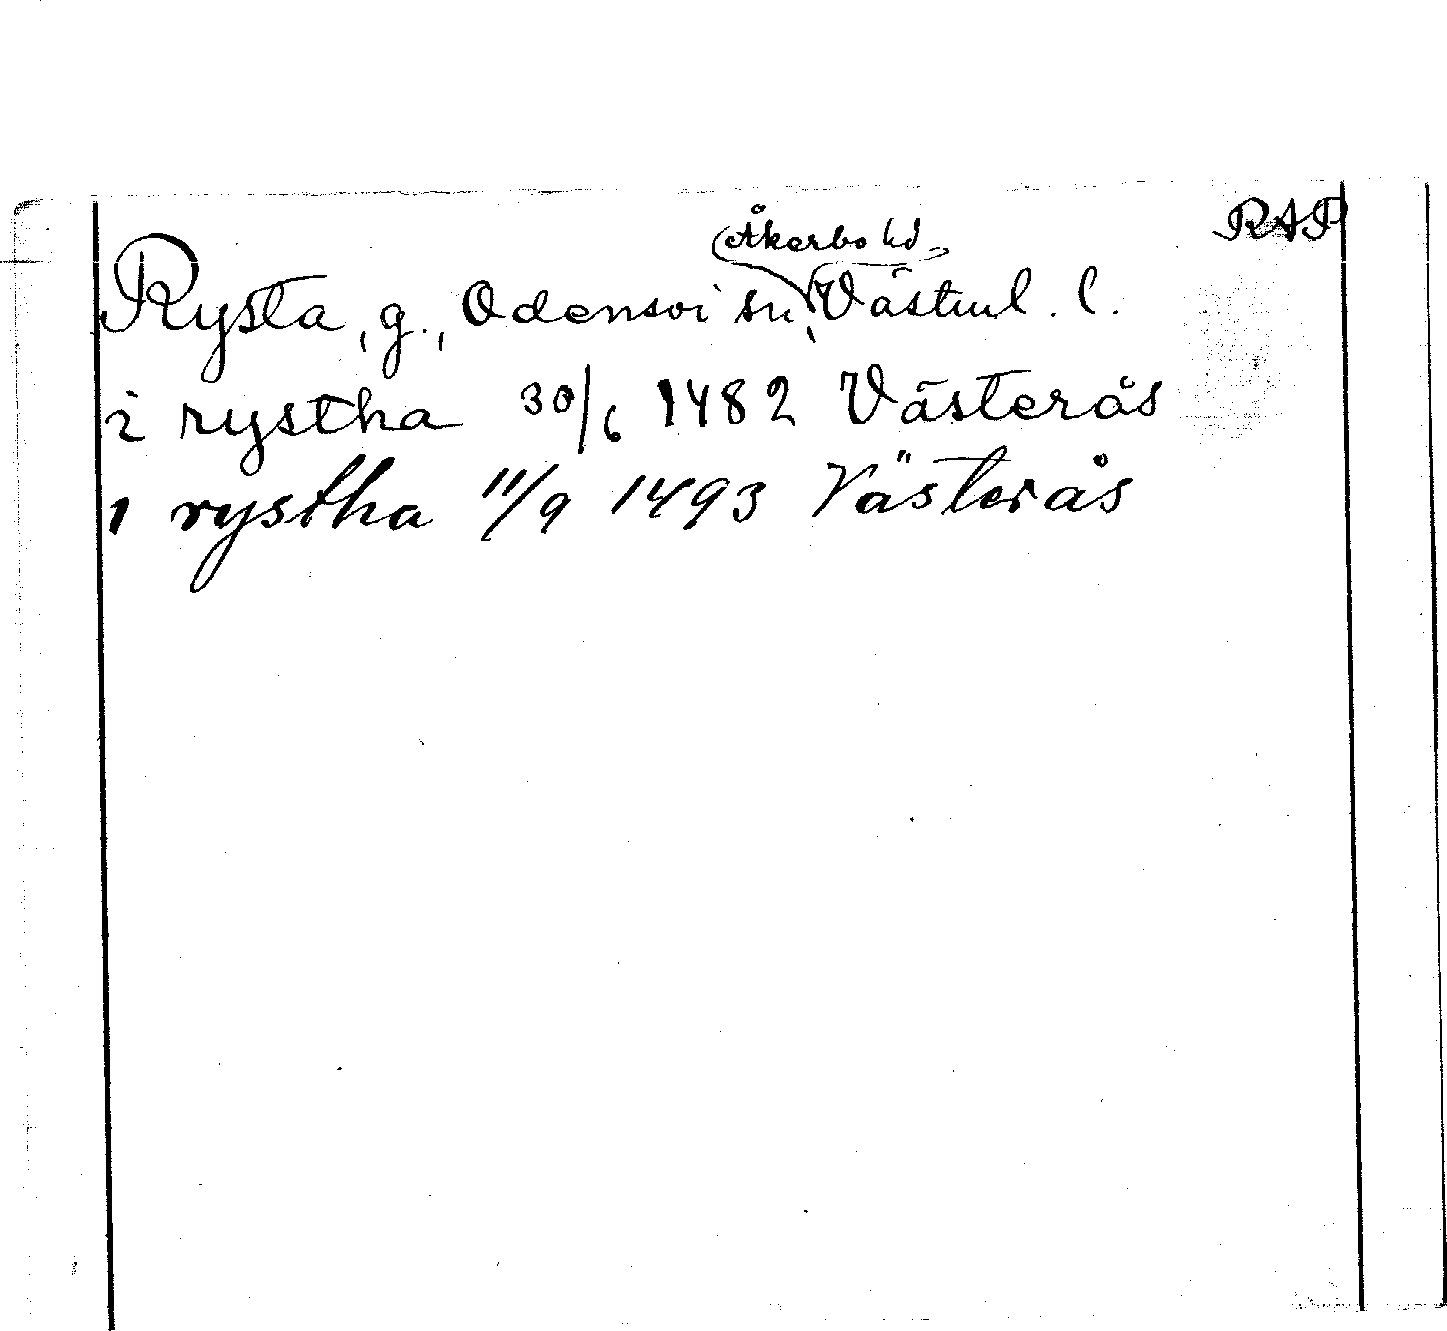 RAP
Åkerbo hd
Rysta, g., Odensvi sn, Västml. l.
i rystha 30/6 1482 Västerås
i rystha 11/9 1493 Västerås